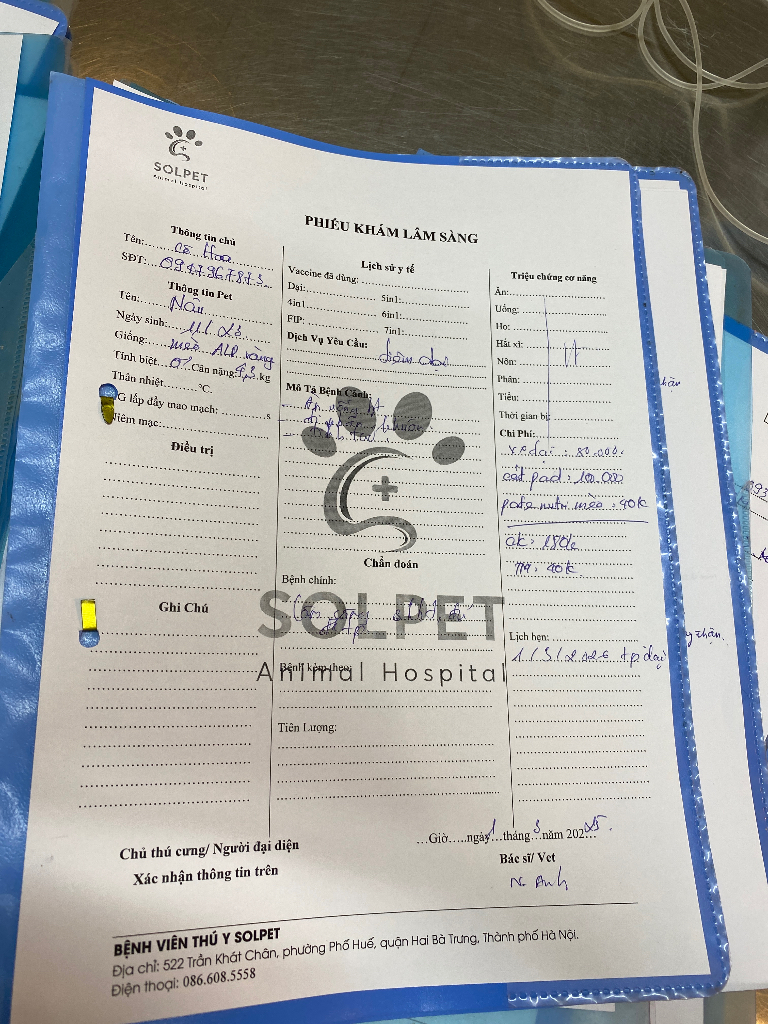 SOLPET
Animal Hospital
PHIẾU KHÁM LÂM SÀNG
Thông tin chủ
Tên: cô Hoa
SĐT: 0947967873
Thông tin Pet
Tên: Nâu
Ngày sinh: 11/23
Giống: mèo ALD vàng
Tính biệt: ♂ Cân nặng: 4,3 kg
Thân nhiệt °C.
G lấp đầy mao mạch: s
Niêm mạc:
Điều trị
Ghi Chú
Lịch sử y tế
Vaccine đã dùng:
Dại: 5in1:
4in1 6in1:
FIP: 7in1:
Dịch Vụ Yêu Cầu:
Mô Tả Bệnh Cảnh:
Chẩn đoán
Bệnh chính:
SOLPET
Animal Hospital
Bệnh kèm theo:
Tiên Lượng:
Triệu chứng cơ năng
Ăn:
Uống:
Ho:
Hắt xì:
Nôn:
Phân:
Tiểu:
Thời gian bị:
Chi Phí:
vx dại: 80.000
cắt pad: 100.000
pate nutri mèo: 40k
ck: 180k
TM: 40k
Lịch hẹn:
1/3/2026 tp dại
Giờ ngày 1 tháng 3 năm 2025.
Bác sĩ/ Vet
N. Anh
Chủ thú cưng/ Người đại diện
Xác nhận thông tin trên
BỆNH VIÊN THÚ Y SOLPET
Địa chỉ: 522 Trần Khát Chân, phường Phố Huế, quận Hai Bà Trưng, Thành phố Hà Nội.
Điện thoại: 086.608.5558